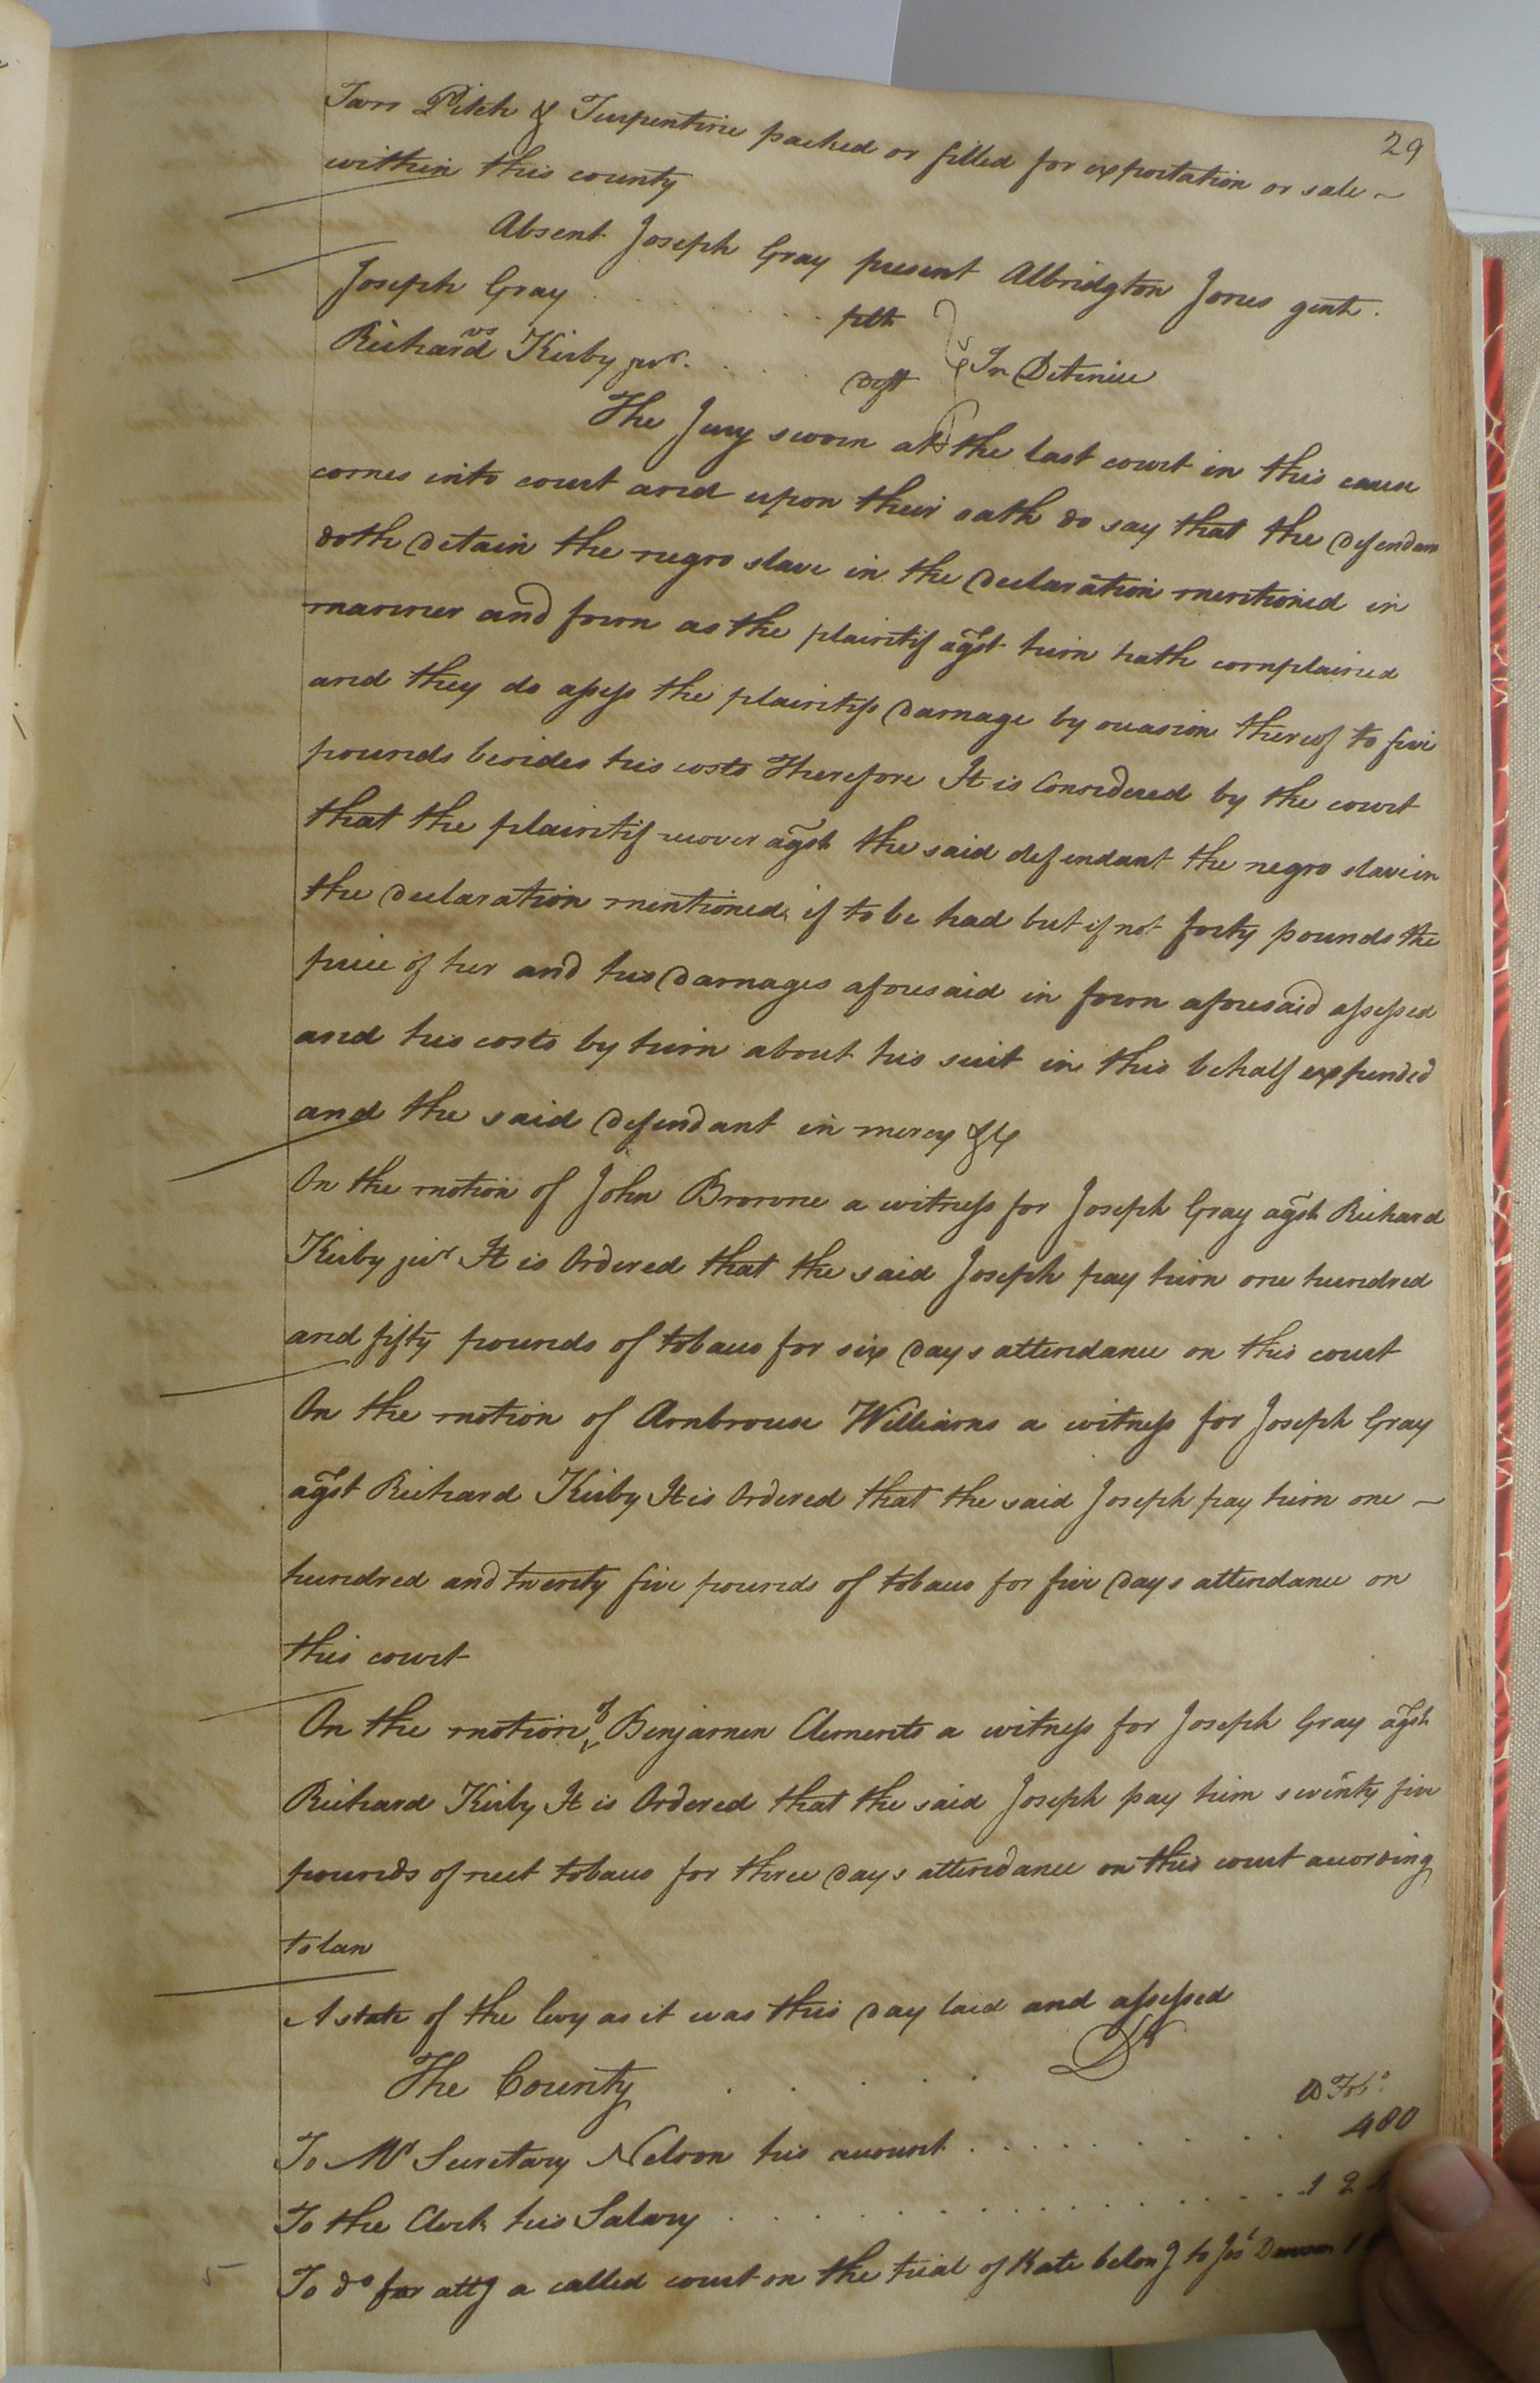 29
Tarr Pitch & Turpentine packed or filled for exportation or sale ~
within this county
Absent Joseph Gray present Albridgton Jones gent.
Joseph Gray . . . . . . pltt
vs
Richard Kirby junr. . . . . deft
In Detinue
The Jury sworn at the last court in this cause
comes into court and upon their oath do say that the defendant
doth detain the negro slave in the declaration mentioned in
manner and form as the plaintif agst him hath complained
and they do assess the plaintifs damage by occasion thereof to five
pounds besides his costs Therefore It is Considered by the court
that the plaintif recover agst the said defendant the negro slave in
the declaration mentioned if to be had but if not forty pounds the
price of her and his damages aforesaid in form aforesaid assessed
and his costs by him about his suit in this behalf expended
and the said defendant in mercy &c
On the motion of John Browne a witness for Joseph Gray agst Richard
Kirby junr It is Ordered that the said Joseph pay him one hundred
and fifty pounds of tobacco for six days attendance on this court
On the motion of Ambrouse Williams a witness for Joseph Gray
agst Richard Kirby It is Ordered that the said Joseph pay him one ~
hundred and twenty five pounds of tobacco for five days attendance on
this court
On the motion of Benjamen Clements a witness for Joseph Gray agst
Richard Kirby It is Ordered that the said Joseph pay him seventy five
pounds of neet tobacco for three days attendance on this court according
to law
A state of the levy as it was this day laid and assessed
The County . . . . . Dr
Tobo.
To Mr Secretary Nelson his account . . . . . . . . 480
To the Clerk his Salary . . . . . . . . . .
5
To do for attg a called court on the trial of Kate belong to Jos